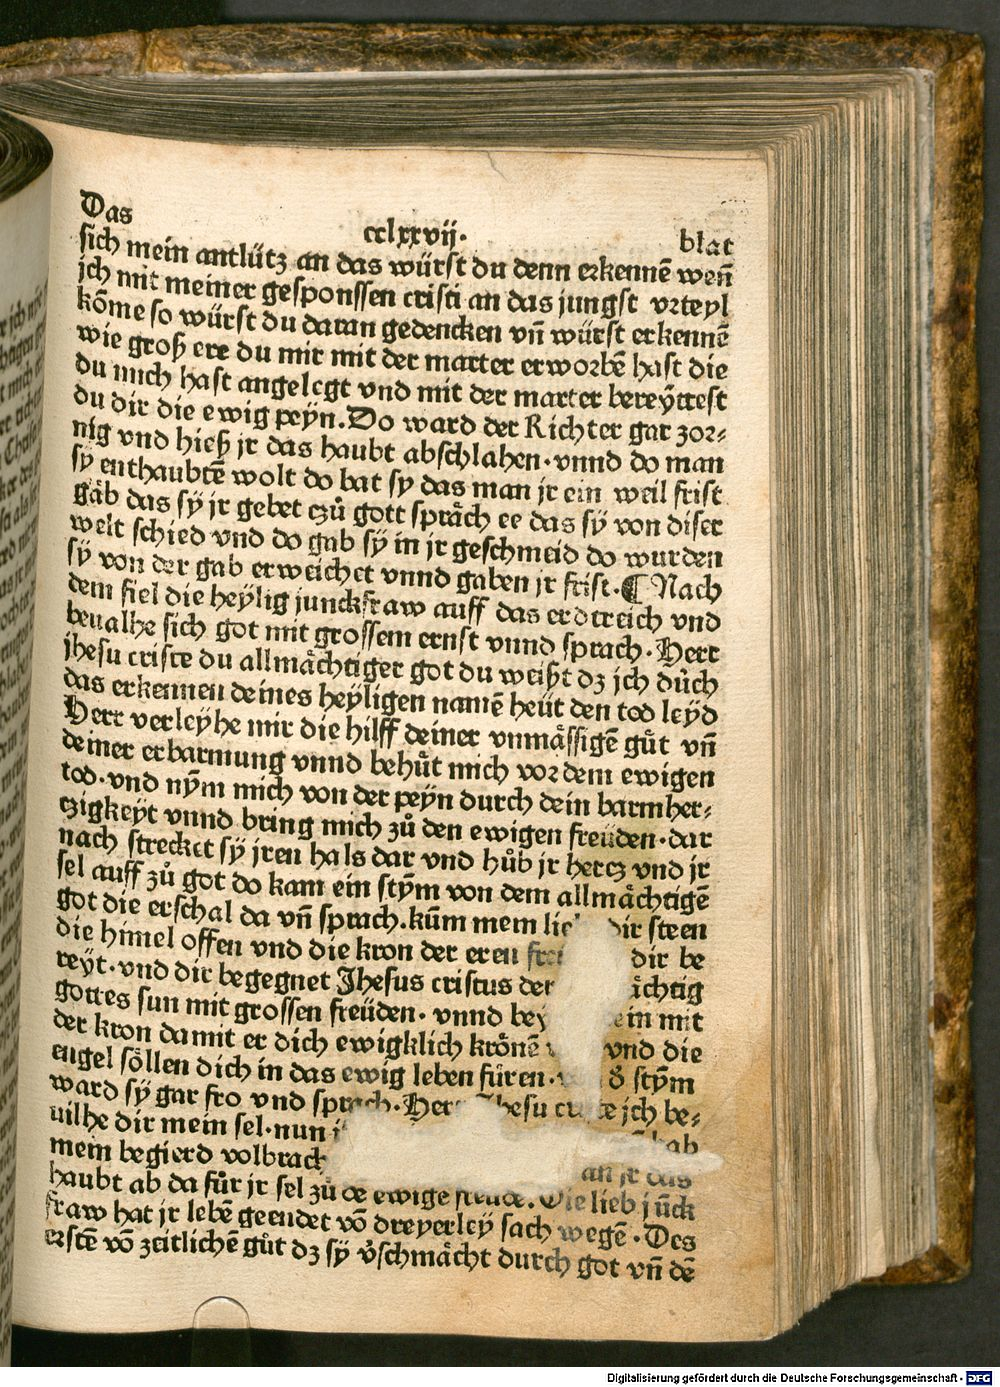 Das cclxxvij. blat
sich mein antlütz an das würst du denn erkennē weñ
jch mit meiner gesponssen cristi an das jungst vrteyl
kōme so würst du daran gedencken vñ würst erkennē
wie groß ere du mir mit der marter erworbē hast die
du mich hast angelegt vnd mit der marter bereÿttest
du dir die ewig peÿn. Do ward der Richter gar zor⸗
nig vnd hieß jr das haubt abschlahen. vnnd do man
sÿ enthaubtē wolt do bat sy das man jr ein weil frist
gäb das sÿ jr gebet czů gott spräch ee das sÿ von diser
welt schied vnd do gab sÿ in jr geschmeid do wurden
sÿ von der gab erweichet vnnd gaben jr frist. ¶ Nach
dem fiel die heÿlig junckfraw auff das erdtreich vnd
beualhe sich got mit grossem ernst vnnd sprach. Herr
jhesu criste du allmächtiger got du weißt dz jch důch
das erkennen deines heÿligen namē heüt den tod leÿd
Herr verleÿhe mir die hilff deiner vnmässigē gůt vñ
deiner erbarmung vnnd behůt mich vor dem ewigen
tod. vnd nÿm mich von der peÿn durch dein barmher⸗
czigkeÿt vnnd bring mich zů den ewigen freüden. dar
nach strecket sÿ jren hals dar vnd hůb jr hercz vnd jr
sel auff zů got do kam ein stÿm von dem allmächtigē
got die erschal da vñ sprach. kūm mein dir steen
die himel offen vnd die kron der eren dir be
reÿt. vnd dir begegnet Jhesus cristus der ächtig
gottes sun mit grossen freüden. vnnd ein mit
der kron damit er dich ewigklich krönē vnd die
engel söllen dich in das ewig leben füren. ð stÿm
ward sÿ gar fro vnd sprach. Herr Jhesu criste jch be⸗
uilhe dir mein sel. nun hab
mein begierd volbrach an jr das
haubt ab da fůr jr sel zů dē ewigē freüde. Die lieb jūck
fraw hat jr lebē geendet vō dreyerleÿ sach wegē. Des
erstē vō zeitlichē gůt dz sÿ v̈schmächt durch got vñ dē
Digitalisierung gefördert durch die Deutsche Forschungsgemeinschaft - DFG